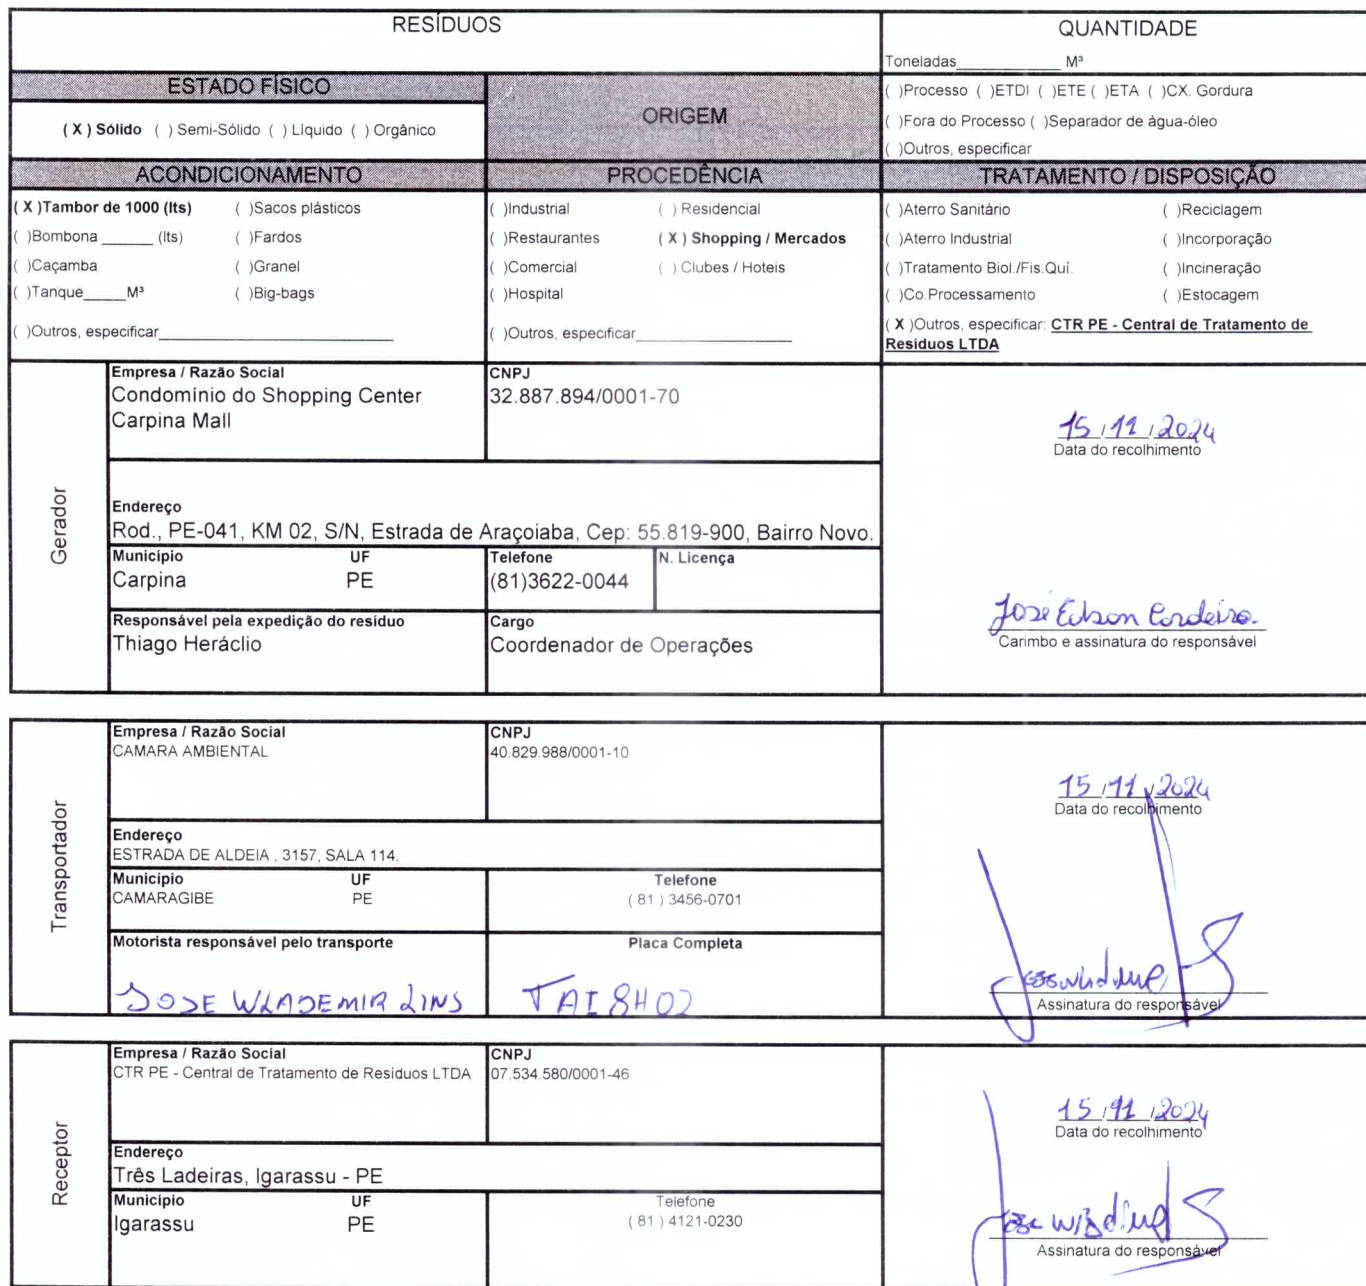 RESÍDUOS
QUANTIDADE
Toneladas____________ M³
ESTADO FÍSICO
ORIGEM
( X ) Sólido ( ) Semi-Sólido ( ) Líquido ( ) Orgânico
( )Processo ( )ETDI ( )ETE ( )ETA ( )CX. Gordura
( )Fora do Processo ( )Separador de água-óleo
( )Outros, especificar
ACONDICIONAMENTO
PROCEDÊNCIA
TRATAMENTO / DISPOSIÇÃO
( X )Tambor de 1000 (lts) ( )Sacos plásticos
( )Bombona ______ (lts) ( )Fardos
( )Caçamba ( )Granel
( )Tanque_____M³ ( )Big-bags
( )Outros, especificar___________________________
( )Industrial ( ) Residencial
( )Restaurantes ( X ) Shopping / Mercados
( )Comercial ( ) Clubes / Hoteis
( )Hospital
( )Outros, especificar__________________
( )Aterro Sanitário ( )Reciclagem
( )Aterro Industrial ( )Incorporação
( )Tratamento Biol./Fis.Quí. ( )Incineração
( )Co.Processamento ( )Estocagem
( X )Outros, especificar: CTR PE - Central de Tratamento de
Resíduos LTDA
Gerador
Empresa / Razão Social
Condomínio do Shopping Center
Carpina Mall
CNPJ
32.887.894/0001-70
15/11/2024
Data do recolhimento
Endereço
Rod., PE-041, KM 02, S/N, Estrada de Araçoiaba, Cep: 55.819-900, Bairro Novo.
Município UF
Carpina PE
Telefone
(81)3622-0044
N. Licença
Responsável pela expedição do resíduo
Thiago Heráclio
Cargo
Coordenador de Operações
José Edson Cordeiro.
Carimbo e assinatura do responsável
Transportador
Empresa / Razão Social
CAMARA AMBIENTAL
CNPJ
40.829.988/0001-10
15/11/2024
Data do recolhimento
Endereço
ESTRADA DE ALDEIA , 3157, SALA 114.
Município UF
CAMARAGIBE PE
Telefone
( 81 ) 3456-0701
Motorista responsável pelo transporte
JOSE WLADEMIR LINS
Placa Completa
TAI 8H02
Assinatura do responsável
Receptor
Empresa / Razão Social
CTR PE - Central de Tratamento de Resíduos LTDA
CNPJ
07.534.580/0001-46
15/11/2024
Data do recolhimento
Endereço
Três Ladeiras, Igarassu - PE
Município UF
Igarassu PE
Telefone
( 81 ) 4121-0230
Assinatura do responsável